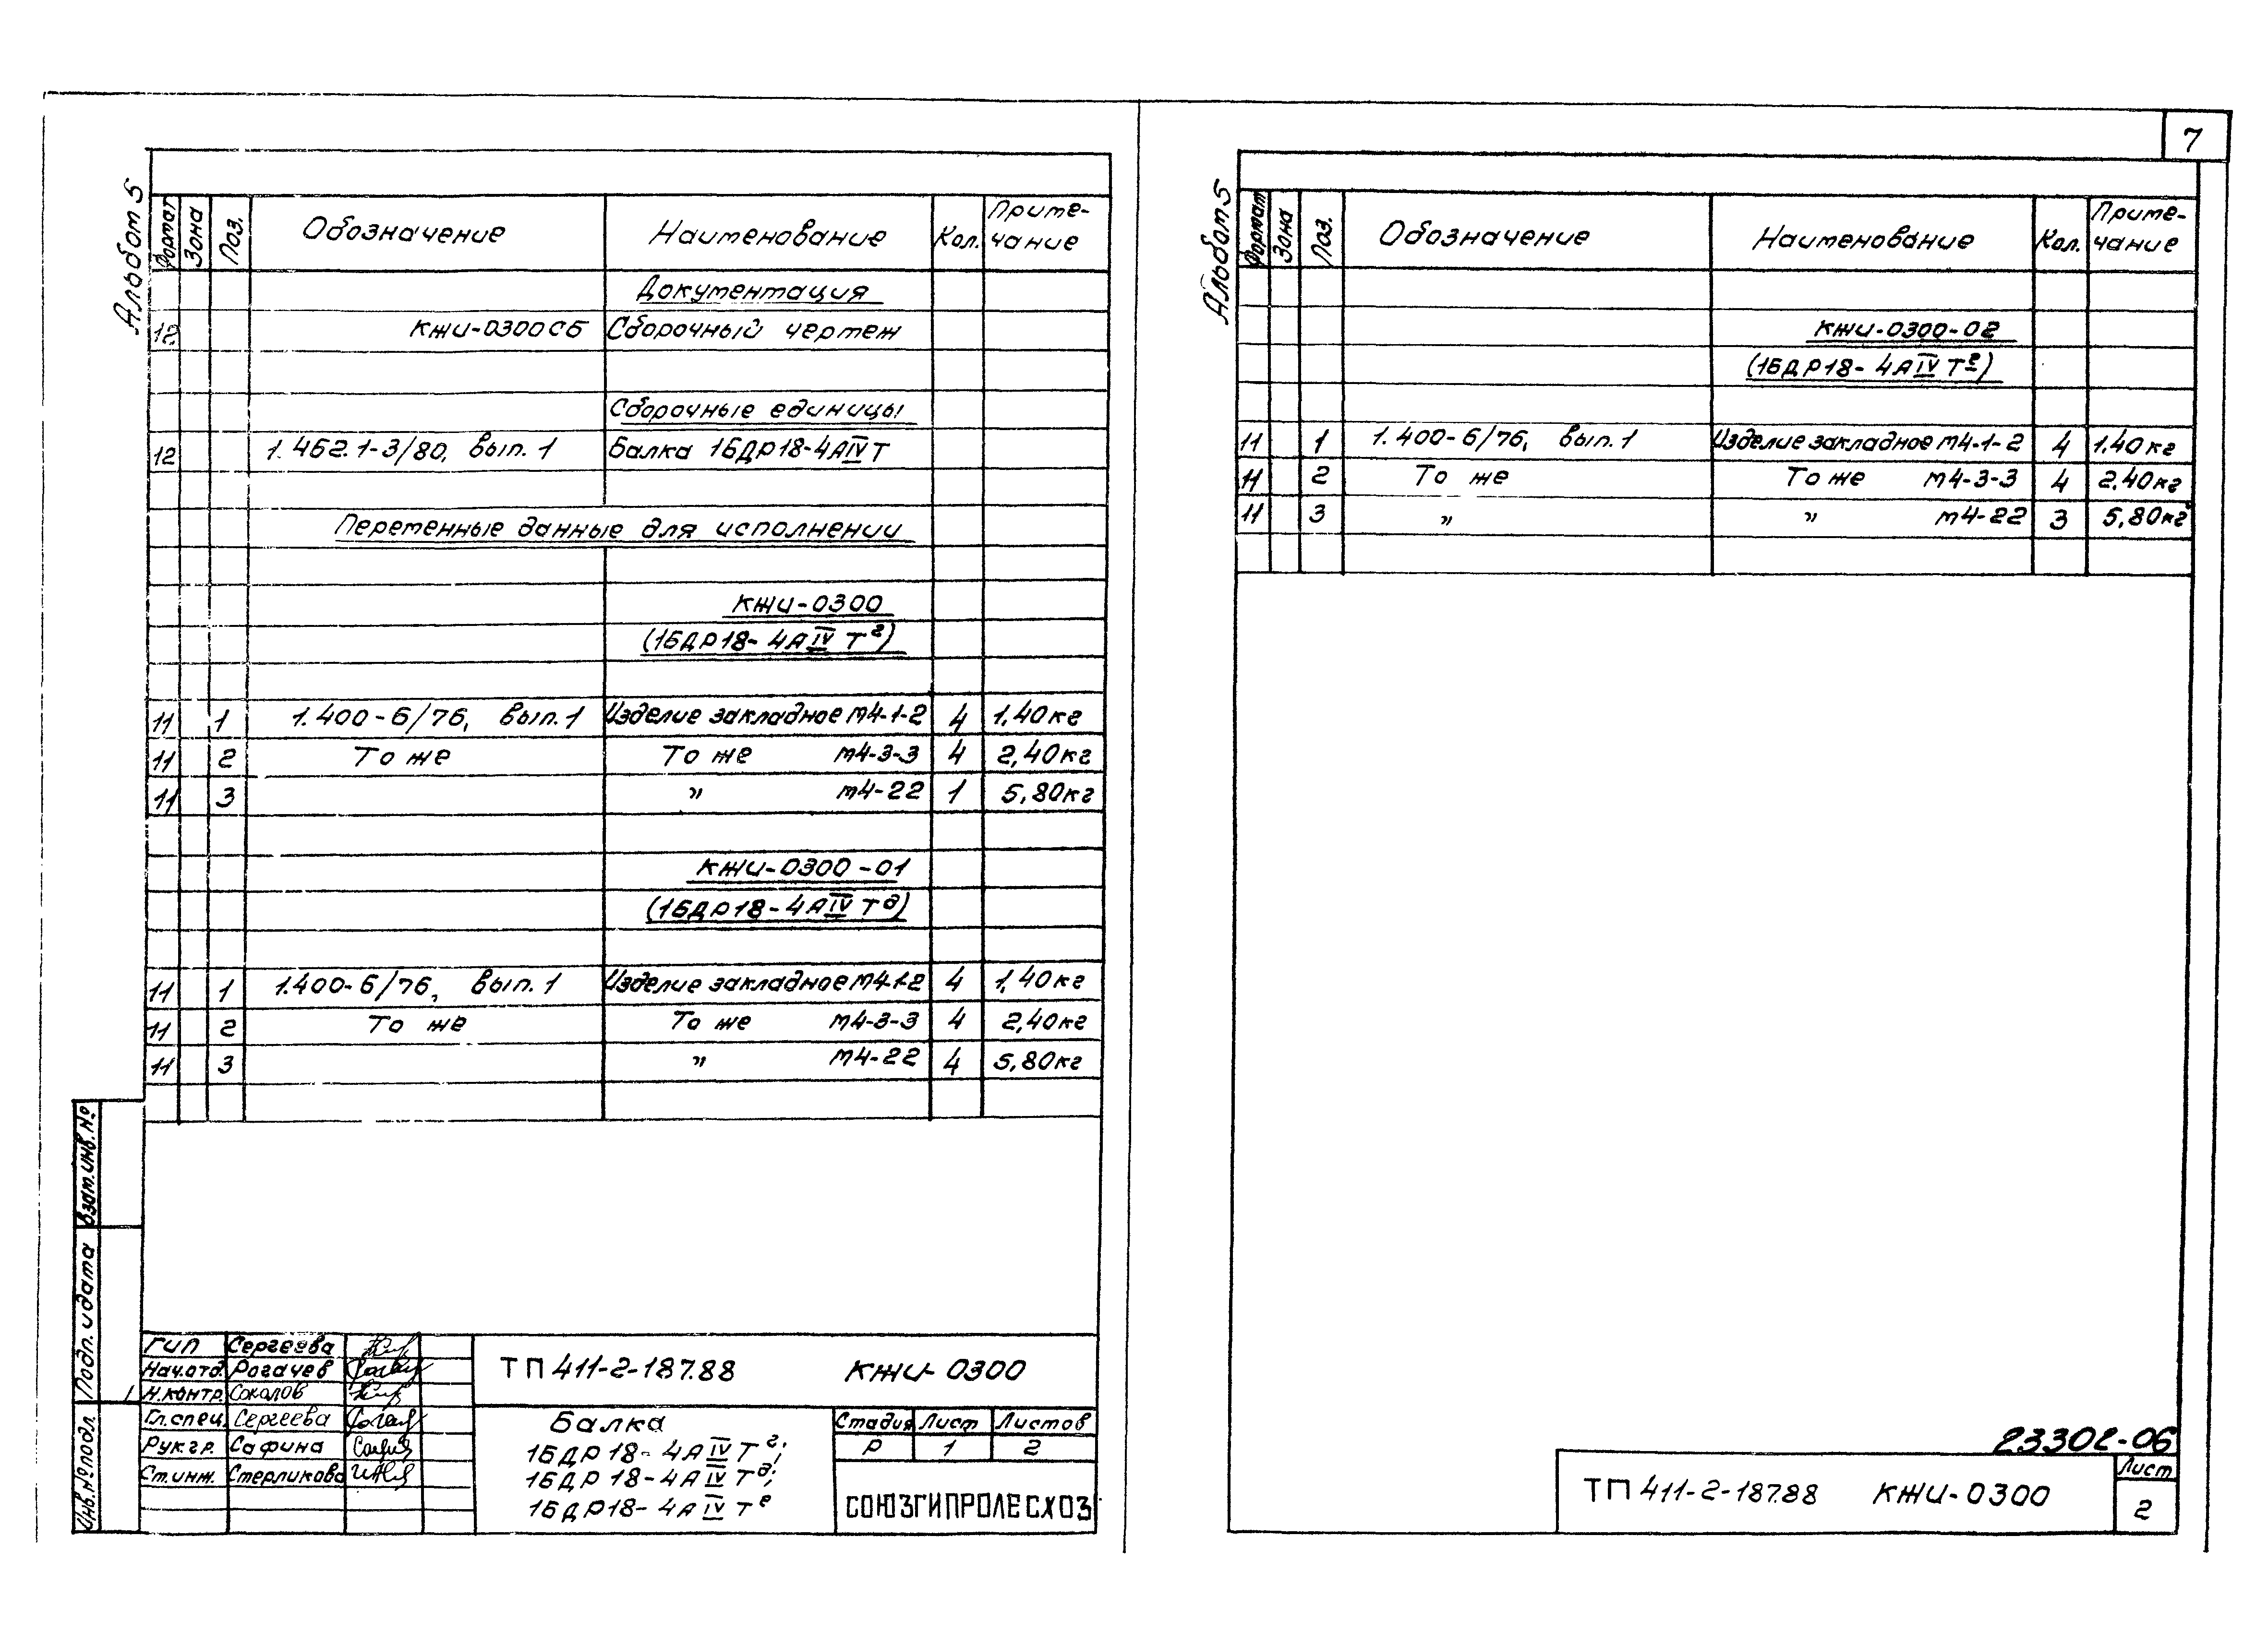 7
Альбом 5
Формат Зона Поз. Обозначение Наименование Кол. Приме-чание
Документация
12 КЖИ-0300СБ Сборочный чертеж
Сборочные единицы
12 1.462.1-3/80, вып. 1 Балка 1БДР18-4АIVТ
Переменные данные для исполнений
КЖИ-0300
(1БДР18-4АIVТг)
11 1 1.400-6/76, вып. 1 Изделие закладное М4-1-2 4 1,40кг
11 2 То же То же М4-3-3 4 2,40кг
11 3 " М4-22 1 5,80кг
КЖИ-0300-01
(1БДР18-4АIVТд)
11 1 1.400-6/76, вып. 1 Изделие закладное М4-1-2 4 1,40кг
11 2 То же То же М4-3-3 4 2,40кг
11 3 " М4-22 4 5,80кг
Взам.инв.№
Подп. и дата
Инв.№подл.
ГИП Сергеева
Нач.отд. Рогачев
Н.контр. Соколов
Гл.спец. Сергеева
Рук.гр. Сафина
Ст.инж. Стерликова
ТП 411-2-187.88 КЖИ-0300
Балка
1БДР18-4АIVТг;
1БДР18-4АIVТд;
1БДР18-4АIVТе
Стадия Лист Листов
Р 1 2
СОЮЗГИПРОЛЕСХОЗ
Альбом 5
Формат Зона Поз. Обозначение Наименование Кол. Приме-чание
КЖИ-0300-02
(1БДР18-4АIVТе)
11 1 1.400-6/76, вып. 1 Изделие закладное М4-1-2 4 1,40кг
11 2 То же То же М4-3-3 4 2,40кг
11 3 " " М4-22 3 5,80кг
23302-06
ТП 411-2-187.88 КЖИ-0300
Лист
2